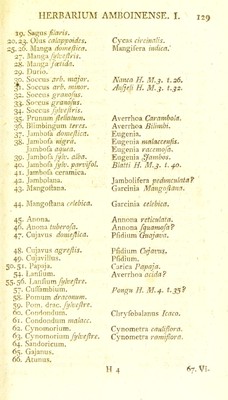 HERBARIUM AMBOINENSE. I. 129
19. Sagus filaris.
20. 23. Olus calappoides. Cycus circinalis.
25. 26. Manga domestica. Mangifera indica.
27. Manga sylvestris.
28. Manga fœtida.
29. Durio.
30. Soccus arb. major. Nanca H. M. 3. t. 26.
31. Soccus arb. minor. H. M. 3. t. 32.
32. Soccus granosus.
33. Soccus granosus.
34. Soccus sylvestris.
35. Prunum stellatum. Averrhoa Carambola.
36. Blimbingum teres. Averrhoa Bilimbi.
37. Jambosa domestica. Eugenia.
38. Jambosa nigra. Eugenia malaccensis.
Jambosa aquea. Eugenia racemosa.
39. Jambosa sylv. alba. Eugenia Jambos.
40. Jambosa sylv. parvifol. Blatti H. M. 3. t. 40.
41. Jambosa ceramica.
42. Jambolana. Jambolifera pedunculata?
43. Mangostana. Garcinia Mangostana.
44. Mangostana celebica. Garcinia celebica.
45. Anona. Annona reticulata.
46. Anona tuberosa. Annona squamosa?
47. Cujavus domestica. Psidium Guajava.
48. Cujavus agrestis. Psidium Cujavus.
49. Cujavillus. Psidium.
50. 51. Papaja. Carica Papaja.
54. Lansium. Averrhoa acida?
55. 56. Lansium sylvestre.
57. Cussambium. Pongu H. M. 4. t. 35?
58. Pomum draconum.
59. Pom. drac. sylvestre.
60. Condondum. Chrysobalanus Icaco.
61. Condondum malacc.
62. Cynomorium. Cynometra cauliflora.
63. Cynomorium sylvestre. Cynometra ramiflora.
64. Sandoricum.
65. Gajanus.
66. Atunus.
H 4 67. VI.